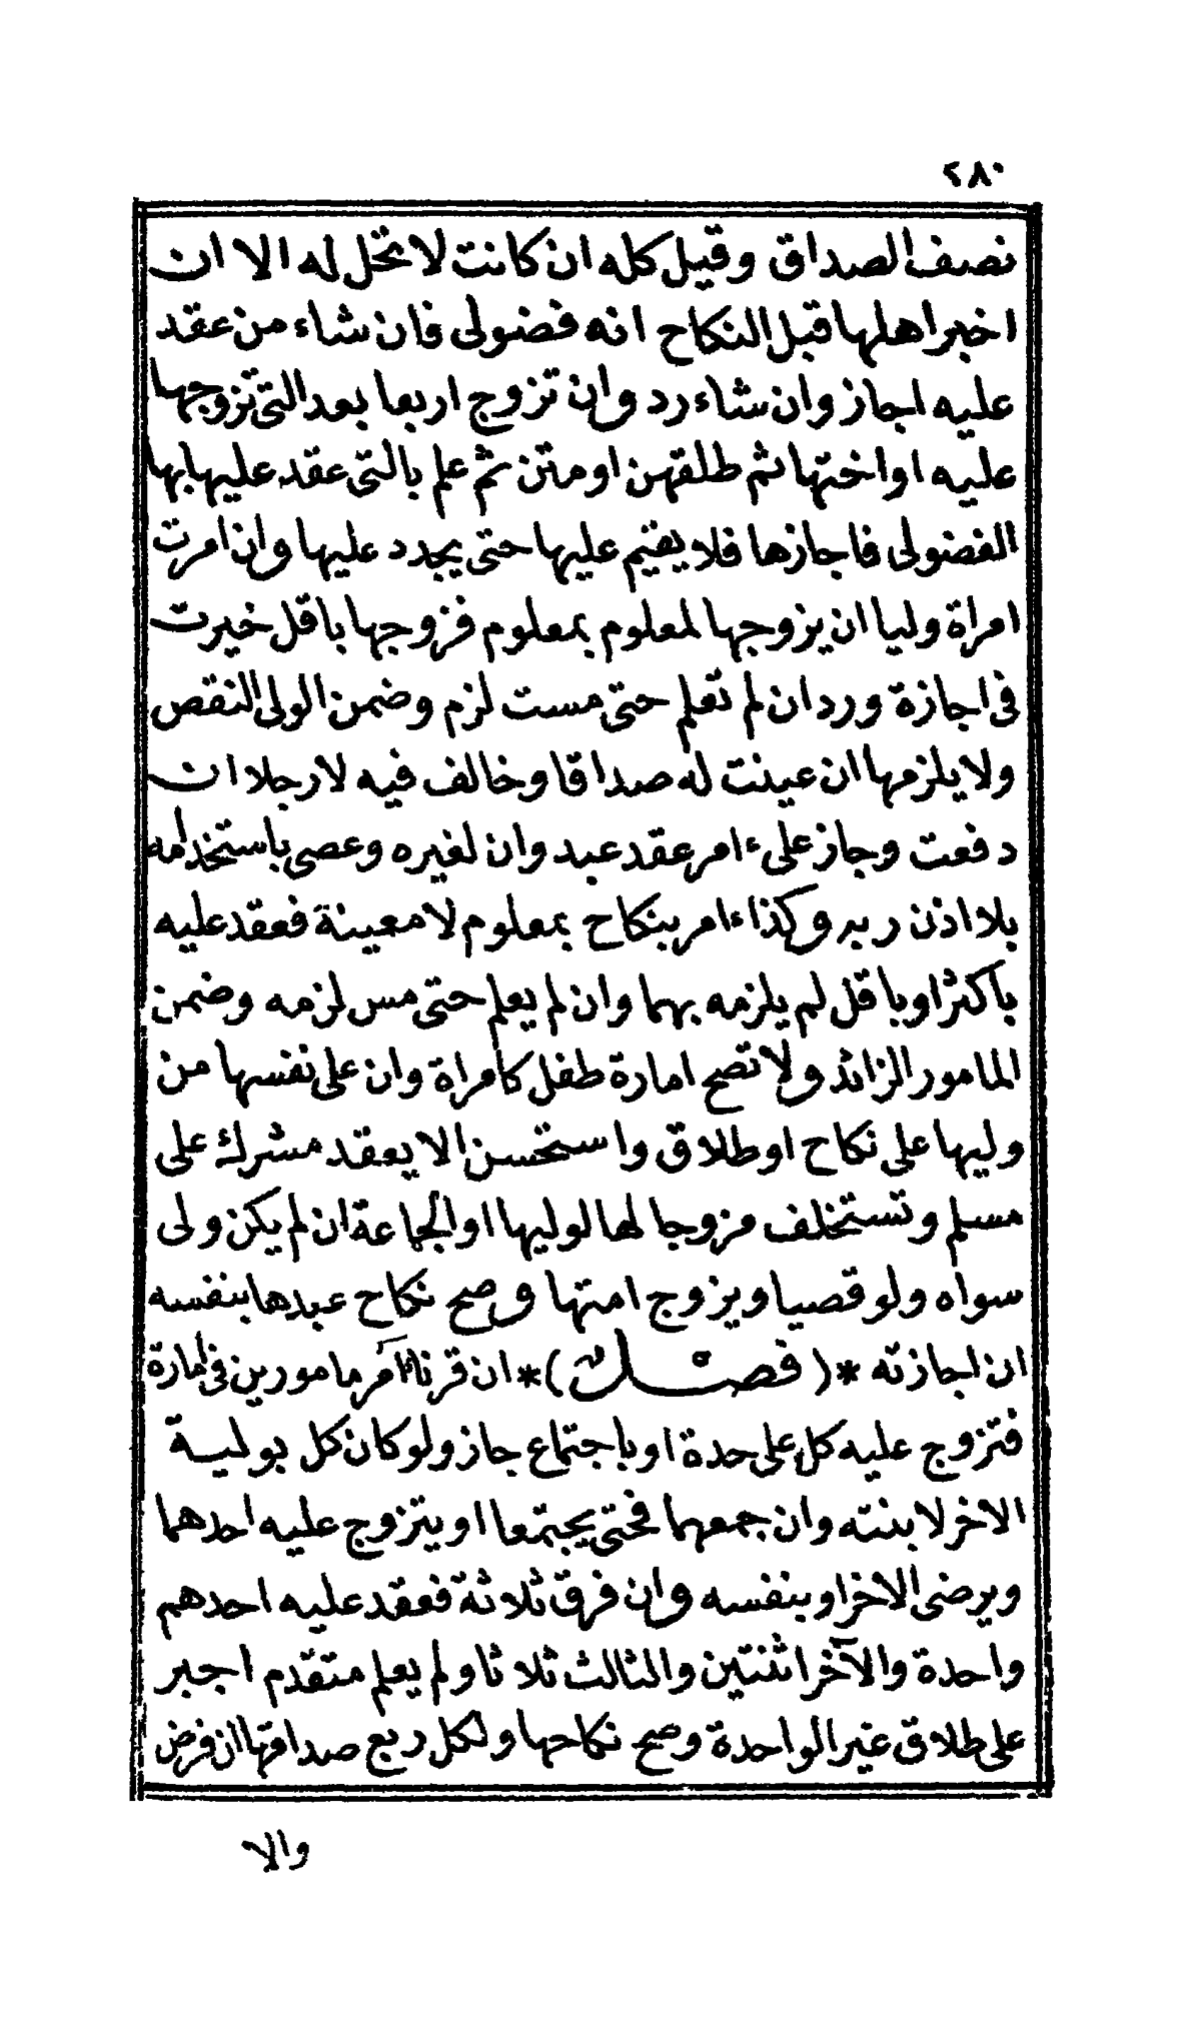 ٢٨٠
نصف الصداق وقيل كله ان كانت لا تحل له الا ان
اخبر اهلها قبل النكاح انه فضولى فان شاء من عقد
عليه اجاز وان شاء رد وان تزوج اربعا بعد التى تزوجها
عليه او اختها ثم طلقهن او متن ثم علم بالتى عقد عليها بها
الفضولى فاجازها فلا يقيم عليها حتى يجدد عليها وان امرت
امراة وليا ان يزوجها لمعلوم بمعلوم فزوجها باقل خيرت
فى اجازة ورد ان لم تعلم حتى مست لزم وضمن الولى النقص
ولا يلزمها ان عينت له صداقا وخالف فيه لا رجلا ان
دفعت وجاز على ء امر عقد عبد وان لغيره وعصى باستخدامه
بلا اذن ربه وكذاء امر بنكاح بمعلوم لا معينة فعقد عليه
باكثر او باقل لم يلزمه بهما وان لم يعلم حتى مس لزمه وضمن
المامور الزائد ولا تصح امارة طفل كامراة وان على نفسها من
وليها على نكاح او طلاق واستحسن الا يعقد مشرك على
مسلم وتستخلف مزوجا لها لوليها او الجماعة ان لم يكن ولى
سواه ولو قصيا ويزوج امتها وصح نكاح عبدها بنفسه
ان اجازته *( فصل )* ان قرن ءامر مامورين فى امارة
فتزوج عليه كل على حدة او باجتماع جاز ولو كان كل بولية
الاخر لا بنته وان جمعهما فحتى يجتمعا او يتزوج عليه احدهما
ويرضى الاخر او بنفسه وان فرق ثلاثة فعقد عليه احدهم
واحدة والآخر اثنتين والثالث ثلاثا ولم يعلم متقدم اجبر
على طلاق غير الواحدة وصح نكاحها ولكل ربع صداقها ان فرض
والا